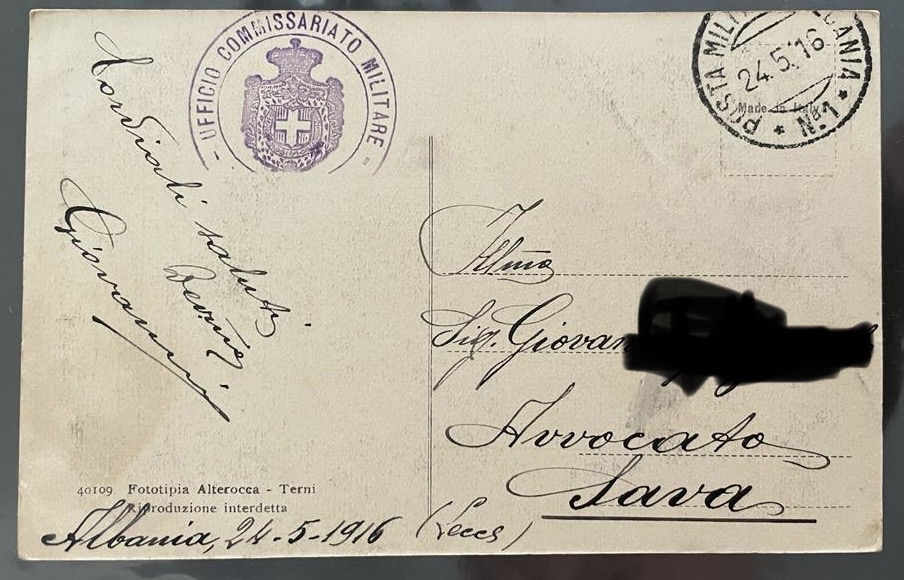 - UFFICIO COMMISSARIATO MILITARE -
POSTA MILI ANIA
* Nº.1 *
24.5.16
Made in Italy
Cordiali saluti
Giovanni
Illmo
Sig. Giovan
Avvocato
Sava
(Lecce)
40109 Fototipia Alterocca - Terni
Riproduzione interdetta
Albania, 24-5-1916